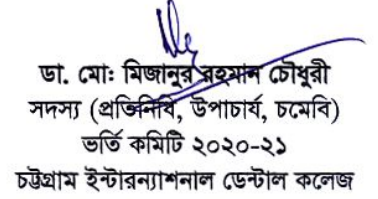 ডা. মোঃ মিজানুর রহমান চৌধুরী
সদস্য (প্রতিনিধি, উপাচার্য, চমেবি)
ভর্তি কমিটি ২০২০-২১
চট্টগ্রাম ইন্টারন্যাশনাল ডেন্টাল কলেজ